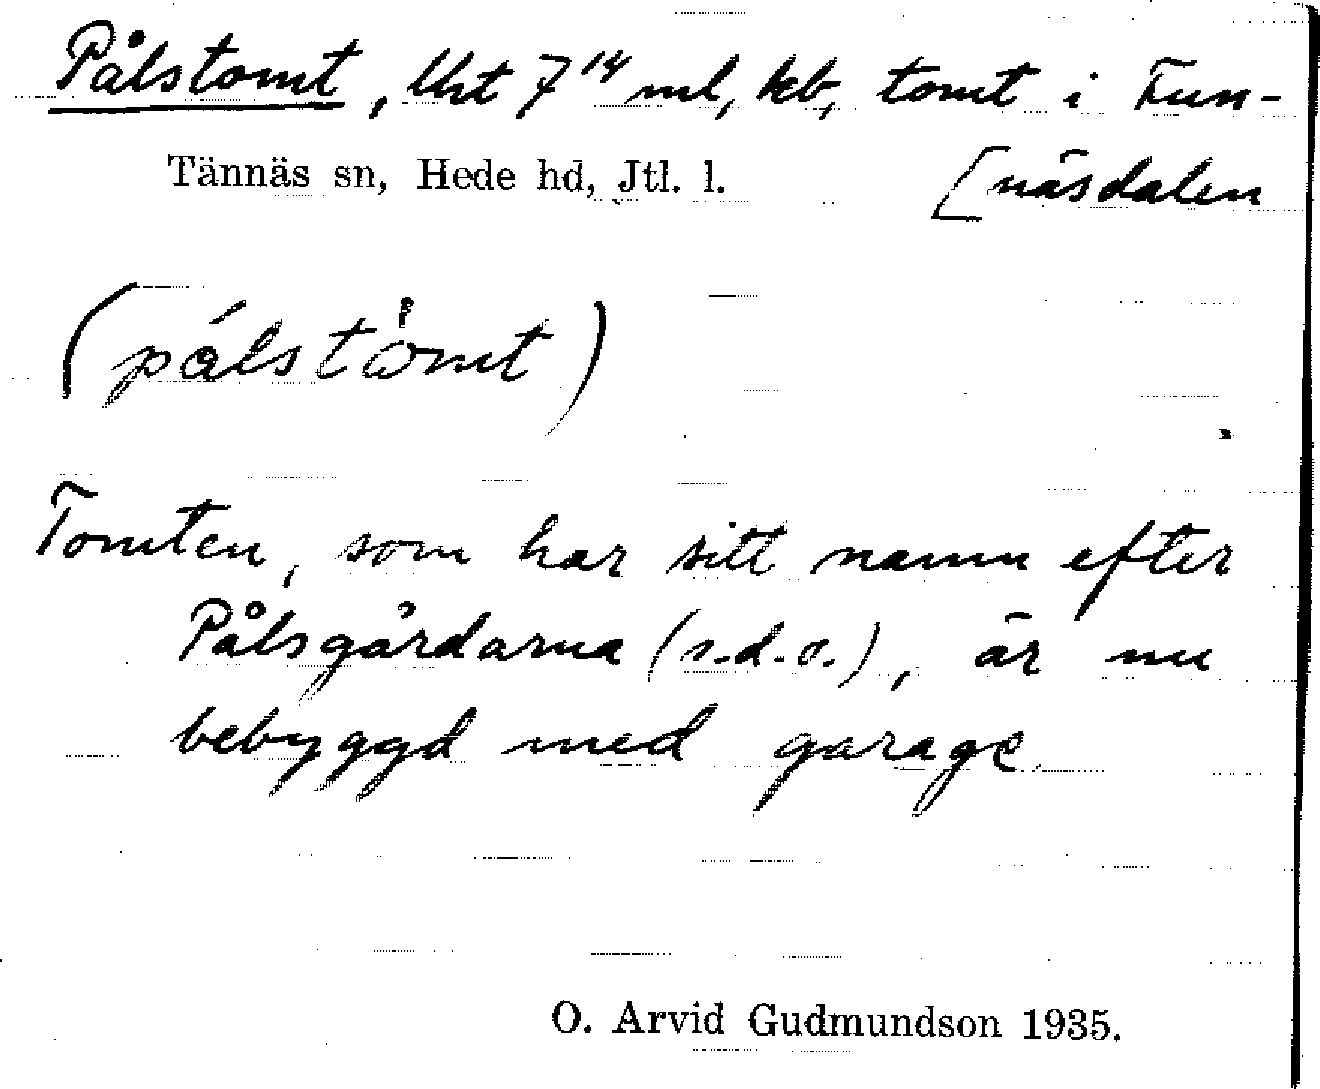 Pålstomt, Uht 7¹⁴ ml, kb, tomt i Fun-
Tännäs sn, Hede hd, Jtl. l. [näsdalen
(pálstȧmt)
Tomten, som har sitt namn efter
Pålsgårdarna (s.d.o.), är nu
bebyggd med garage.
O. Arvid Gudmundson 1935.